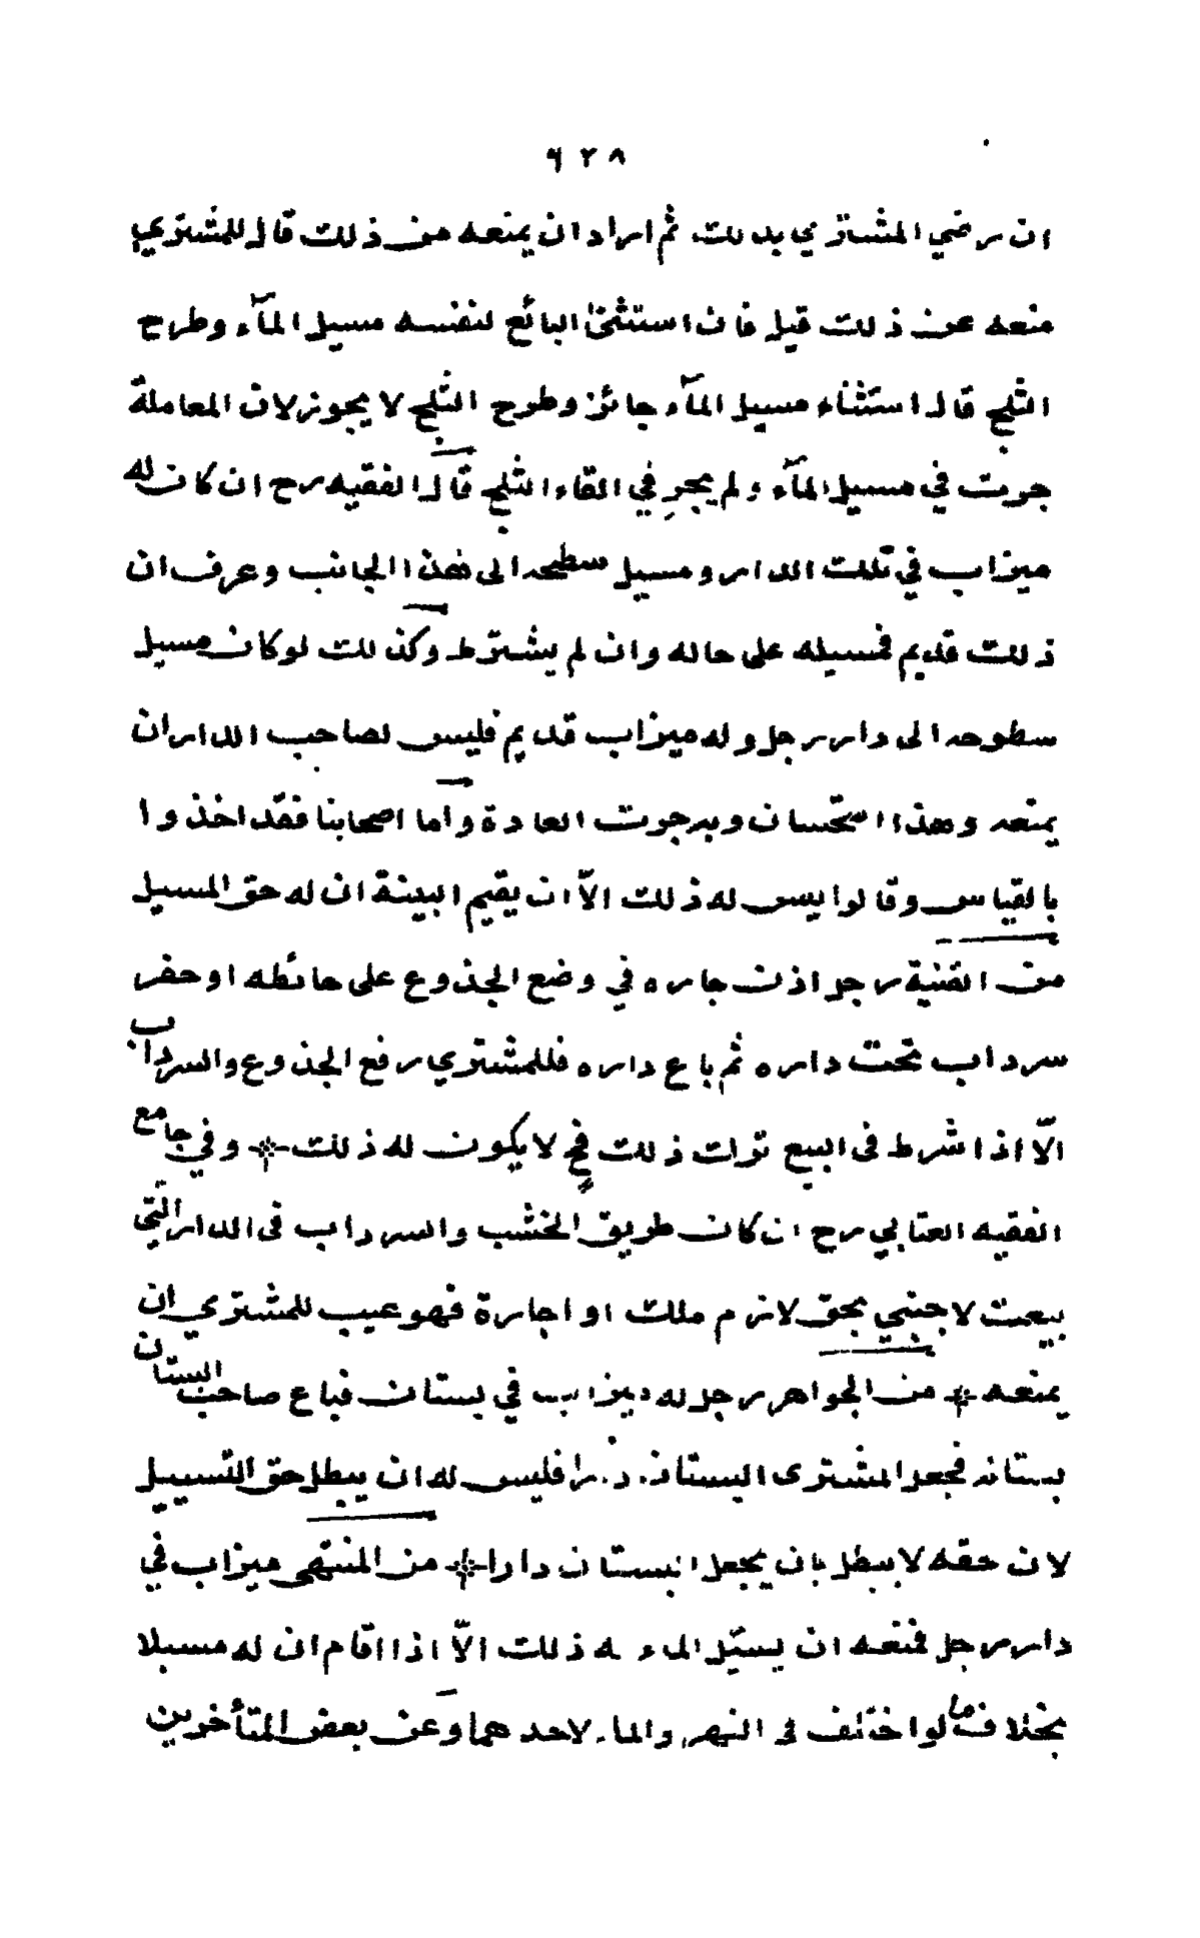 ٦٢٨
ان رضي المشتري بذلك ثم اراد ان يمنعه من ذلك قال للمشتري
منعه عن ذلك قيل فان استثنى البائع لنفسه مسيل المآء وطرح
الثلج قال استثناء مسيل المآء جائز وطرح الثلج لا يجوز لان المعاملة
جرت في مسيل المآء ولم يجرِ في القاء الثلج قال الفقيه رح ان كان له
ميزاب في تلك الدار ومسيل سطحه الى هذا الجانب وعرف ان
ذلك قديم فمسيله على حاله وان لم يشترط وكذلك لو كان مسيل
سطوحه الى دار رجل وله ميزاب قديم فليس لصاحب الدار ان
يمنعه وهذا استحسان وبه جرت العادة واما اصحابنا فقد اخذوا
بالقياس وقالوا ليس له ذلك الّا ان يقيم البينة ان له حق المسيل
من القنية رجل اذن جاره في وضع الجذوع على حائطه او حفر
سرداب تحت داره ثم باع داره فللمشتري رفع الجذوع والسرداب
الّا اذا شرط في البيع ترك ذلك فح لا يكون له ذلك ۞ وفي جامع
الفقيه العتابي رح ان كان طريق الخشب والسرداب في الدار التي
بيعت لاجنبي بحق لازم ملك او اجارة فهو عيب للمشتري ان
يمنعه ۞ من الجواهر رجل له ميزاب في بستان فباع صاحب البستان
بستانه فجعل المشتري البستان دارا فليس له ان يبطل حق التسييل
لان حقه لا يبطل بان يجعل البستان دارا ۞ من المنتهى ميزاب في
دار رجل فمنعه ان يسيّل الماء له ذلك الّا اذا اقام ان له مسيلا
بخلاف ما لو اختلف في النهر والماء لاحدهما وعن بعض المتأخرين